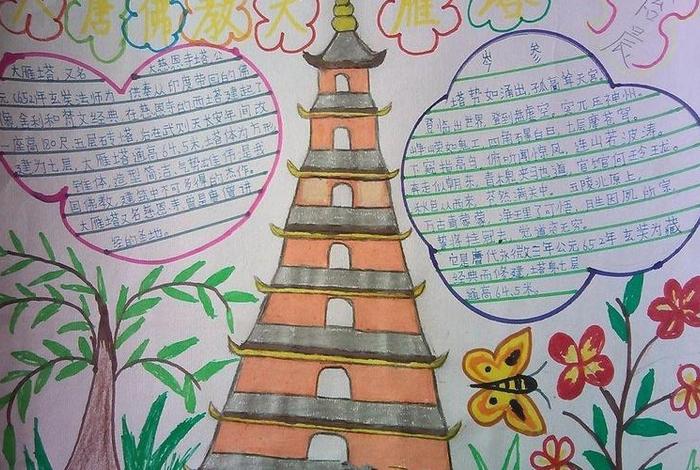 大唐佛教大雁塔
大雁塔,又名 大慈恩寺塔 公
元652年玄奘法师为 供奉从印度带回的佛
像舍利和梵文经典,在慈恩寺的西塔建起了
座高180尺五层砖塔,与在武则天长安年间改
建为七层,大雁塔通高64.5米,塔体为方形
锥体,造型简洁,气势雄伟,是我
国佛教,建筑史中不可多得的杰作。
大雁塔又名慈恩寺曾是皇讲
的圣地。
岑 参
塔势如涌出,孤高耸天宫。
登临出世界,磴道盘虚空。突兀压神州,
峥嵘如鬼工。四角碍白日,七层摩苍穹。
下窥指高鸟,俯听闻惊风。连山若波涛,
奔走似朝东。青松夹驰道,宫馆何玲珑。
秋色从西来,苍然满关中。五陵北原上,
万古青蒙蒙。净理了可悟,胜因夙所宗。
誓将挂冠去,觉道资无穷。
它是唐代永徽三年公元652年玄奘为藏
经典而修建塔身七层
通高64.5米。